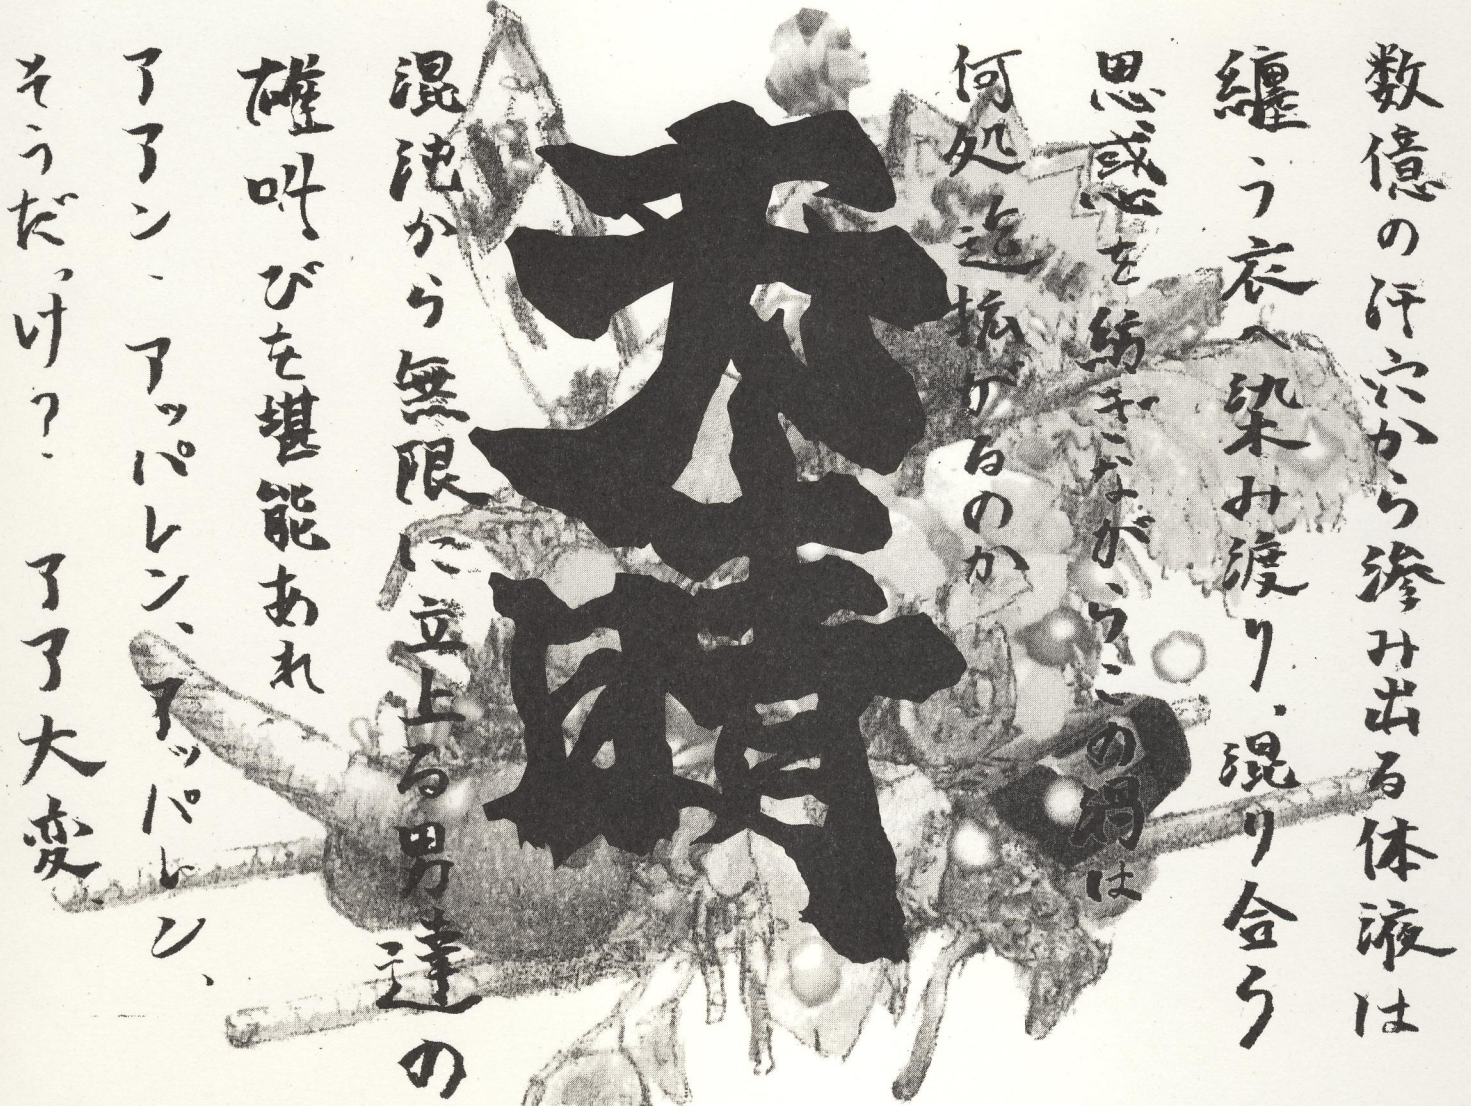 数億の汗穴から滲み出る体液は
纏う衣へ染み渡り、混り合う
思惑を紡ぎながらこの渦は
何処迄拡がるのか
天晴
混沌から無限に立上る男達の
雄叫びを堪能あれ
アアン、アッパレン、アッパレン、
そうだっけ？アア大変